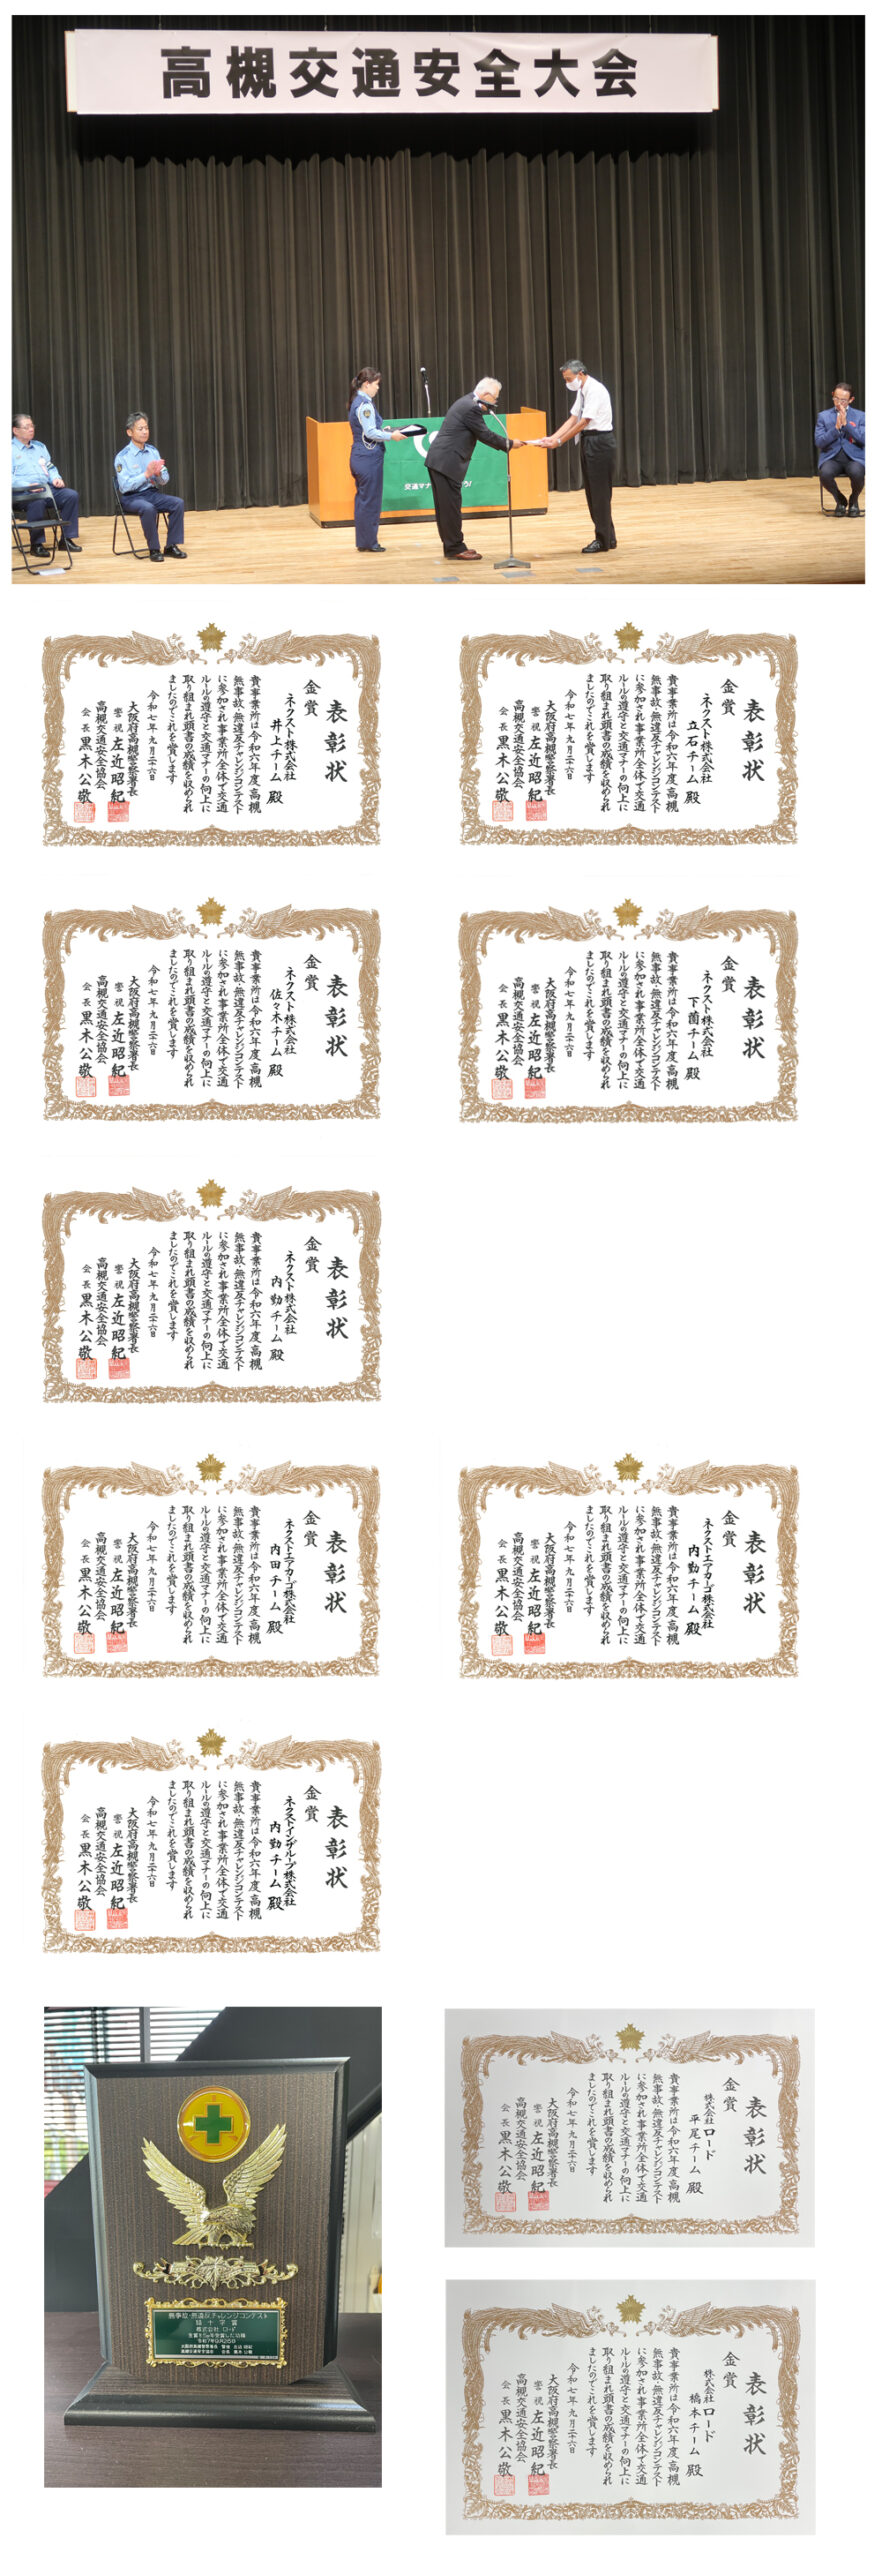 高槻交通安全大会
表彰状
金賞
ネクスト株式会社
井上チーム殿
貴事業所は令和六年度高槻
無事故・無違反チャレンジコンテスト
に参加され事業所全体で交通
ルールの遵守と交通マナーの向上に
取り組まれ頭書の成績を収められ
ましたのでこれを賞します
令和七年九月二十六日
大阪府高槻警察署長
警視 左近昭紀
高槻交通安全協会
会長 黒木公敬
表彰状
金賞
ネクスト株式会社
立石チーム殿
貴事業所は令和六年度高槻
無事故・無違反チャレンジコンテスト
に参加され事業所全体で交通
ルールの遵守と交通マナーの向上に
取り組まれ頭書の成績を収められ
ましたのでこれを賞します
令和七年九月二十六日
大阪府高槻警察署長
警視 左近昭紀
高槻交通安全協会
会長 黒木公敬
表彰状
金賞
ネクスト株式会社
佐々木チーム殿
貴事業所は令和六年度高槻
無事故・無違反チャレンジコンテスト
に参加され事業所全体で交通
ルールの遵守と交通マナーの向上に
取り組まれ頭書の成績を収められ
ましたのでこれを賞します
令和七年九月二十六日
大阪府高槻警察署長
警視 左近昭紀
高槻交通安全協会
会長 黒木公敬
表彰状
金賞
ネクスト株式会社
下薗チーム殿
貴事業所は令和六年度高槻
無事故・無違反チャレンジコンテスト
に参加され事業所全体で交通
ルールの遵守と交通マナーの向上に
取り組まれ頭書の成績を収められ
ましたのでこれを賞します
令和七年九月二十六日
大阪府高槻警察署長
警視 左近昭紀
高槻交通安全協会
会長 黒木公敬
表彰状
金賞
ネクスト株式会社
内勤チーム殿
貴事業所は令和六年度高槻
無事故・無違反チャレンジコンテスト
に参加され事業所全体で交通
ルールの遵守と交通マナーの向上に
取り組まれ頭書の成績を収められ
ましたのでこれを賞します
令和七年九月二十六日
大阪府高槻警察署長
警視 左近昭紀
高槻交通安全協会
会長 黒木公敬
表彰状
金賞
ネクストエアカーゴ株式会社
内田チーム殿
貴事業所は令和六年度高槻
無事故・無違反チャレンジコンテスト
に参加され事業所全体で交通
ルールの遵守と交通マナーの向上に
取り組まれ頭書の成績を収められ
ましたのでこれを賞します
令和七年九月二十六日
大阪府高槻警察署長
警視 左近昭紀
高槻交通安全協会
会長 黒木公敬
表彰状
金賞
ネクストエアカーゴ株式会社
内勤チーム殿
貴事業所は令和六年度高槻
無事故・無違反チャレンジコンテスト
に参加され事業所全体で交通
ルールの遵守と交通マナーの向上に
取り組まれ頭書の成績を収められ
ましたのでこれを賞します
令和七年九月二十六日
大阪府高槻警察署長
警視 左近昭紀
高槻交通安全協会
会長 黒木公敬
表彰状
金賞
ネクストイングループ株式会社
内勤チーム殿
貴事業所は令和六年度高槻
無事故・無違反チャレンジコンテスト
に参加され事業所全体で交通
ルールの遵守と交通マナーの向上に
取り組まれ頭書の成績を収められ
ましたのでこれを賞します
令和七年九月二十六日
大阪府高槻警察署長
警視 左近昭紀
高槻交通安全協会
会長 黒木公敬
無事故・無違反チャレンジコンテスト
緑十字賞
株式会社 ロード
表彰状
金賞
株式会社ロード
平尾チーム殿
貴事業所は令和六年度高槻
無事故・無違反チャレンジコンテスト
に参加され事業所全体で交通
ルールの遵守と交通マナーの向上に
取り組まれ頭書の成績を収められ
ましたのでこれを賞します
令和七年九月二十六日
大阪府高槻警察署長
警視 左近昭紀
高槻交通安全協会
会長 黒木公敬
表彰状
金賞
株式会社ロード
橋本チーム殿
貴事業所は令和六年度高槻
無事故・無違反チャレンジコンテスト
に参加され事業所全体で交通
ルールの遵守と交通マナーの向上に
取り組まれ頭書の成績を収められ
ましたのでこれを賞します
令和七年九月二十六日
大阪府高槻警察署長
警視 左近昭紀
高槻交通安全協会
会長 黒木公敬